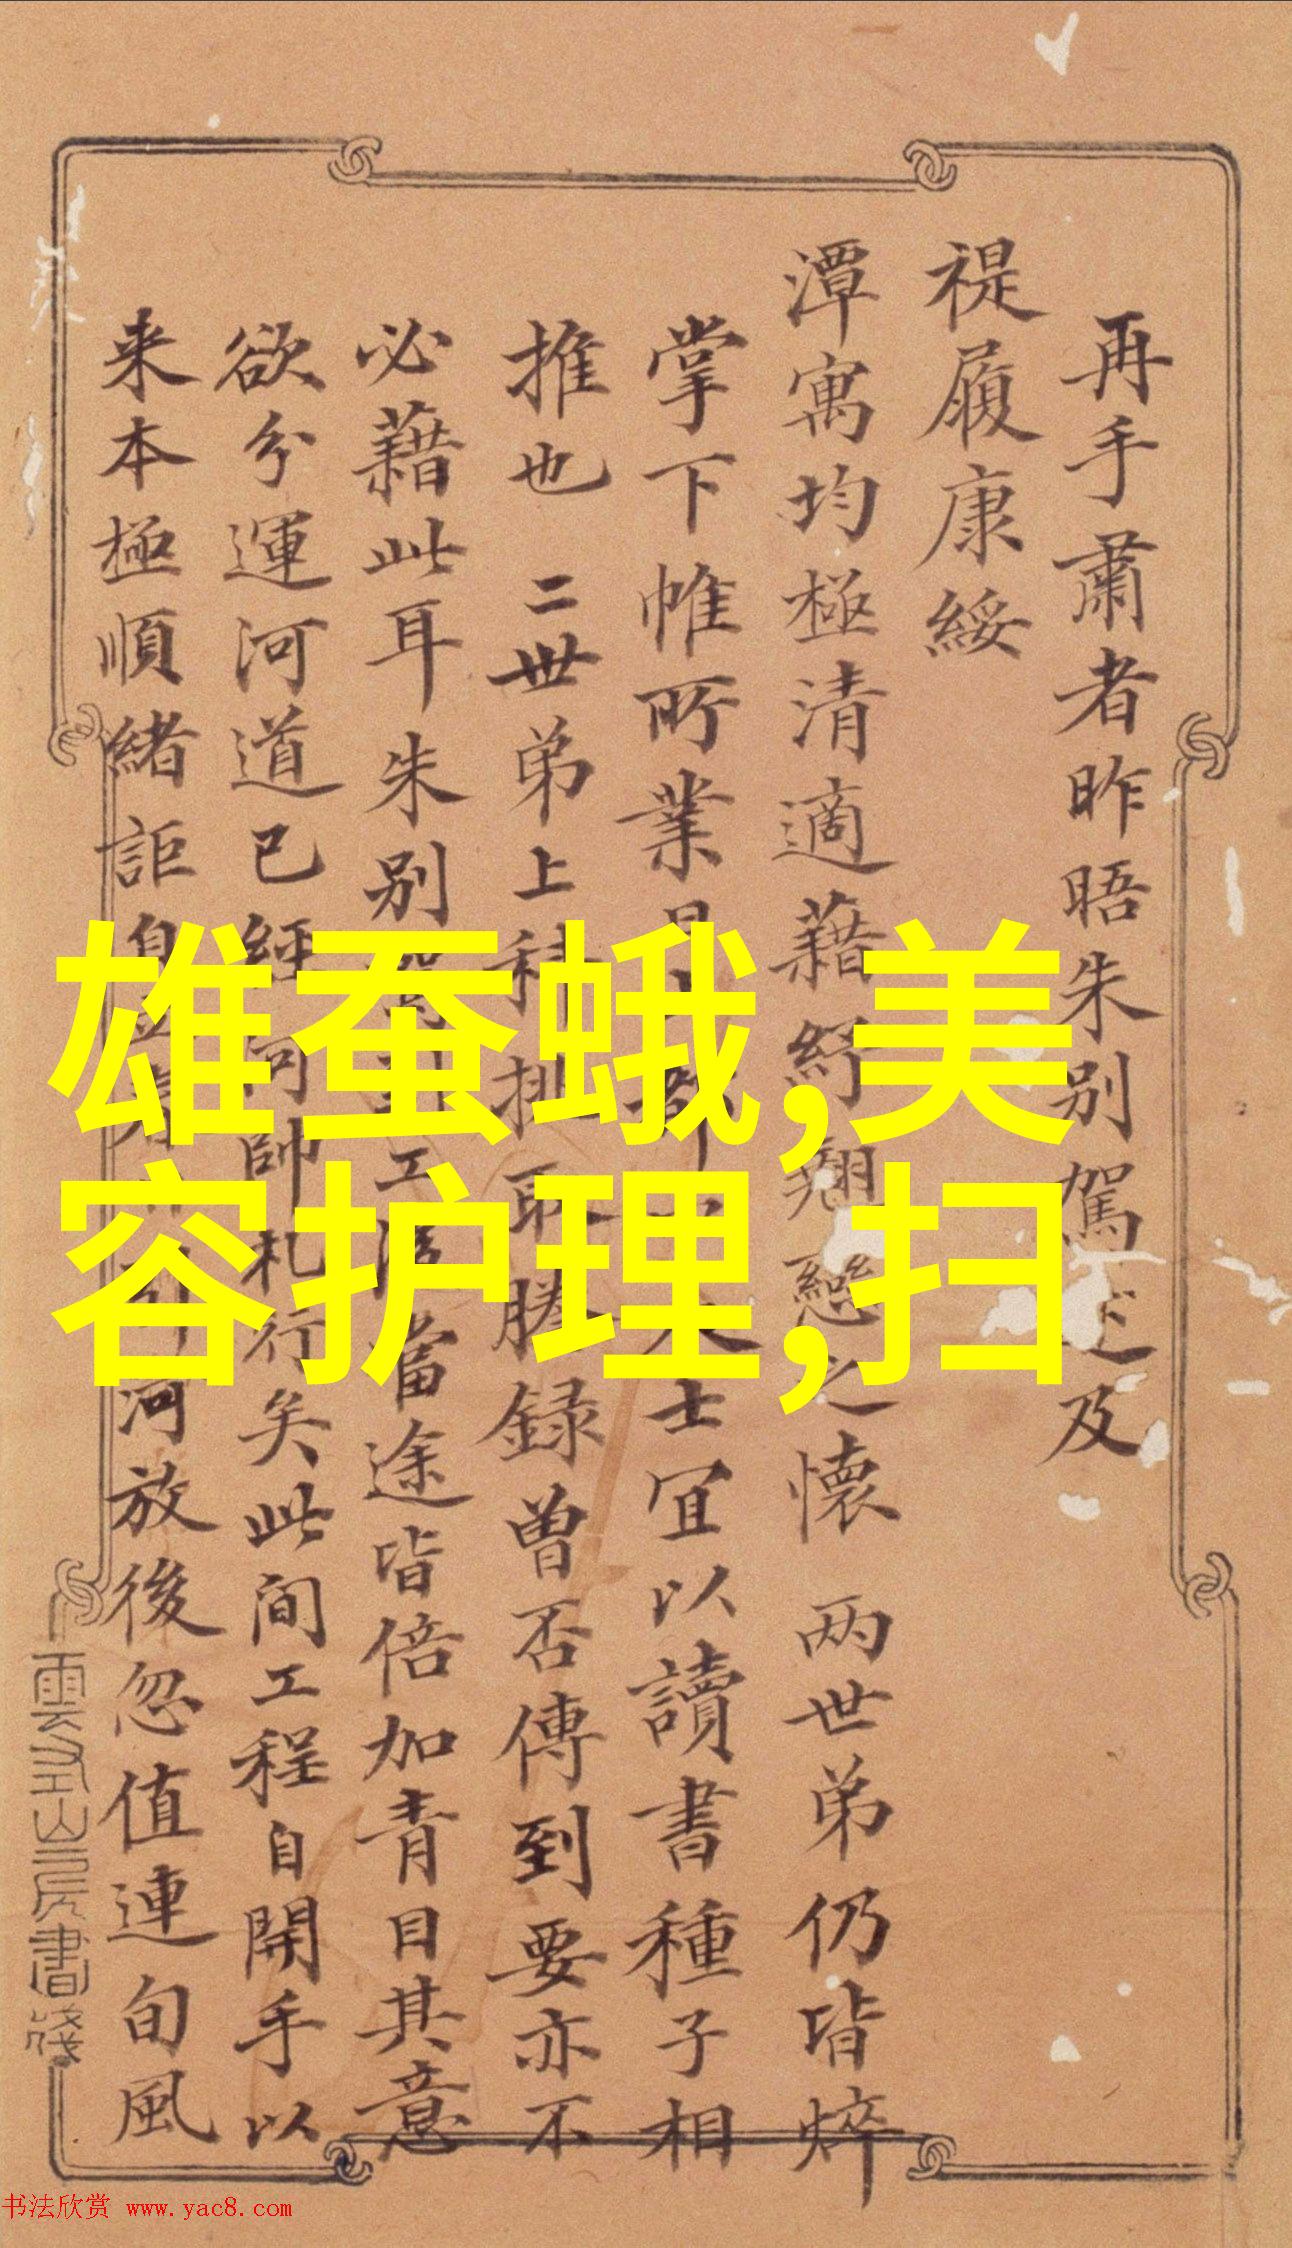 再手肅者昨晤朱别駕述及
禔履康綏
潭寓均極清適藉紓翹戀之懷 两世弟仍皆焠
掌下帷所業 士宜以讀書種子相
推也 二世弟上科挑取謄録曾否傳到要亦不
必藉此耳朱别 工 當途皆倍加青目其意
欲分運河道已經河帥札行矣此间工程自開手以
来本極順緒詎 河放後忽值連旬風
雲 山房書箋
雄蚕蛾,美
容护理,扫
书法欣赏 www.yac8.com